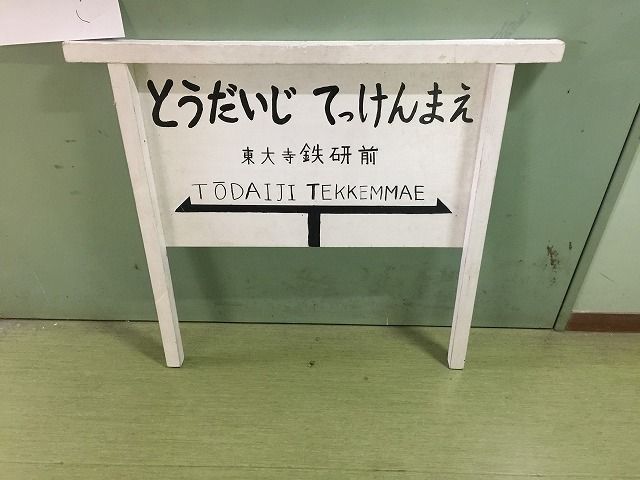 とうだいじ てっけんまえ
東大寺鉄研前
TŌDAIJI TEKKEMMAE